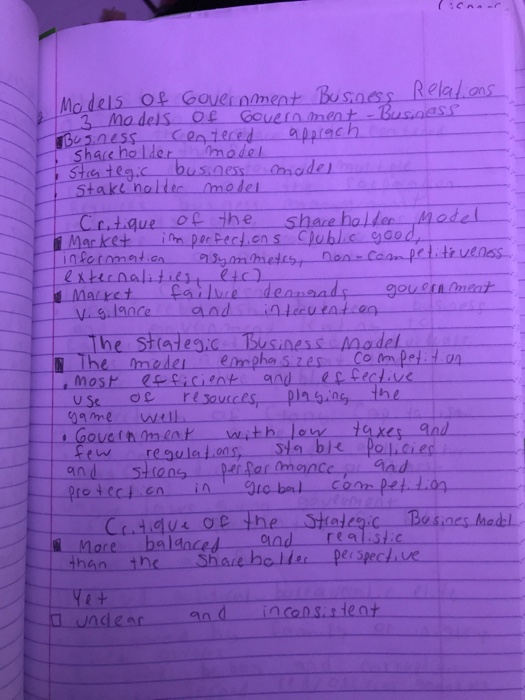 Models of Government Business Relations
3 Models of Government-Business
Business centered appriach
shareholder model
Strategic business model
Stakeholder model
Critique of the shareholder Model
Market imperfections (public good,
information asymmetry, non-competitiveness
externalities, etc)
Market failure demands government
vigilance and intervention
The Strategic Business Model
The model emphasizes competition
Most efficient and effective
use of resources, playing the
game well
Government with low taxes and
few regulations, stable policies
and strong performance and
protection in grobal competition
Critique of the Strategic Busines Model
More balanced and realistic
than the shareholder perspective
Yet
unclear and inconsistent